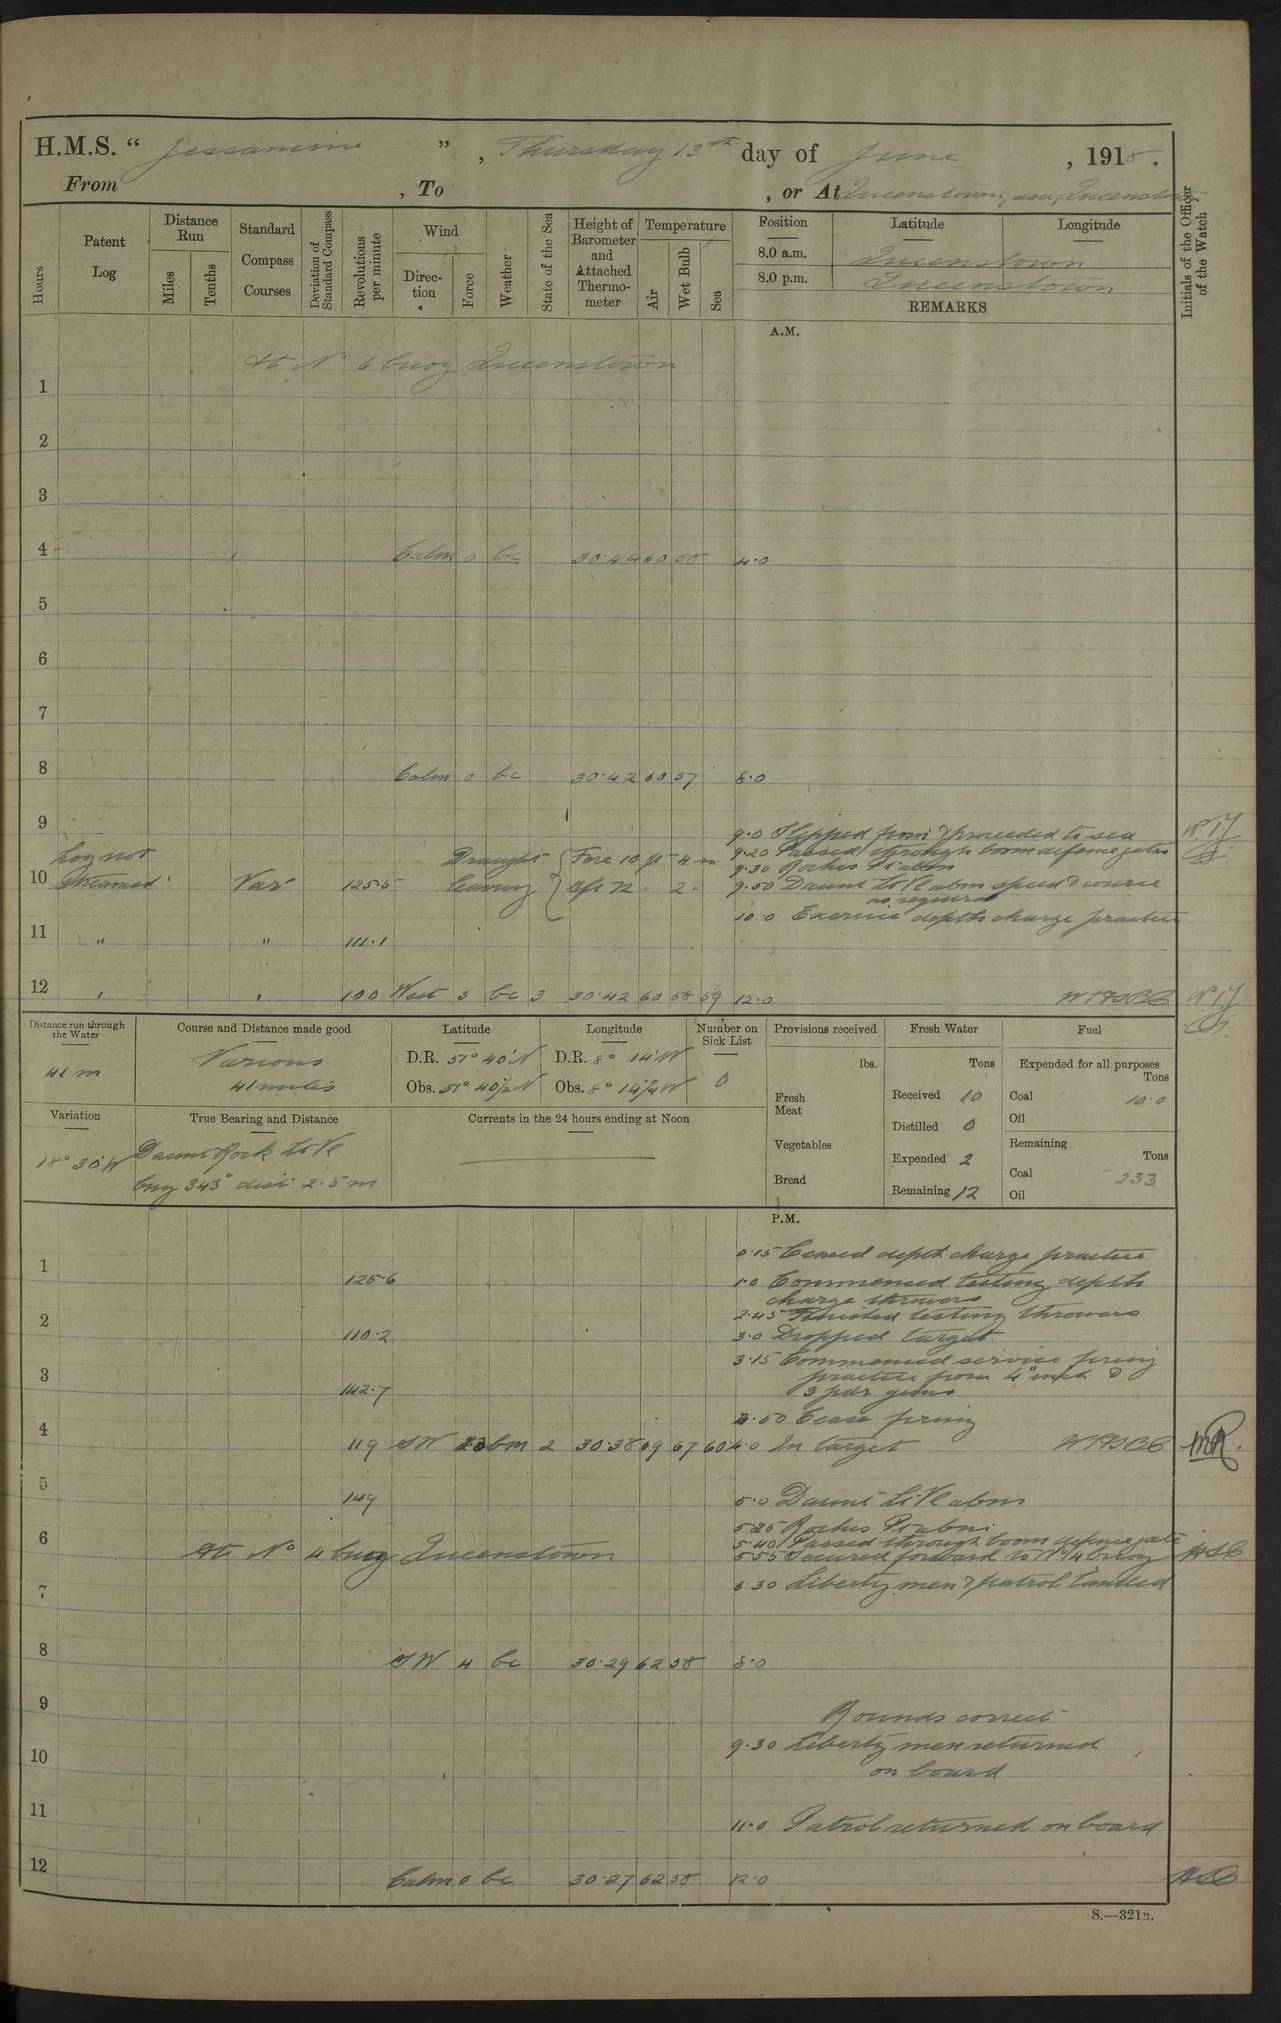 H.M.S. “ Jessamine ” , Thursday 13th day of June , 1918 .
From , To , or At Queenstown, sea, Queenstown
Hours
Patent Log
Distance Run
Miles
Tenths
Standard Compass Courses
Deviation of Standard Compass
Revolutions per minute
Wind
Direction
Force
Weather
State of the Sea
Height of Barometer and Attached Thermometer
Temperature
Air
Wet Bulb
Sea
Position Latitude Longitude
8.0 a.m. Queenstown
8.0 p.m. Queenstown
REMARKS
Initials of the Officer of the Watch
A.M.
At No 6 buoy Queenstown
1
2
3
4 Calm 0 bc 30.44 60 58 4.0
5
6
7
8 Calm 0 bc 30.42 60 57 8.0
9
9.0 Slipped from & proceeded to sea
Log not Draught Fore 10 ft 4 in 9.20 Passed through boom defence gates
9.30 Roches Pt abm
10 Streamed Var 125.5 leaving Aft 12 " 2 " 9.50 Daunt Lt Vl abm speed & course
as required
10.0 Exercise depth charge practice
11 " " 111.1
12 " " 100 West 3 bc 3 30.42 60 58 59 12.0
Distance run through the Water
41 m
Course and Distance made good
Various
41 miles
Latitude
D.R. 51° 40' N
Obs. 51° 40½ N
Longitude
D.R. 8° 14' W
Obs. 8° 14¼ W
Number on Sick List
0
Provisions received
lbs.
Fresh Meat
Vegetables
Bread
Fresh Water
Tons
Received 10
Distilled 0
Expended 2
Remaining 12
Fuel
Expended for all purposes
Tons
Coal 10.0
Oil
Remaining
Tons
Coal 233
Oil
Variation
18° 30' W
True Bearing and Distance
Daunt Rock Lt Vl
brg 343° dist 2.5 m
Currents in the 24 hours ending at Noon
P.M.
0.15 Ceased depth charge practice
1 125.6 1.0 Commenced testing depth
charge throwers
2.45 Finished testing throwers
2 110.2 3.0 Dropped target.
3.15 Commenced service firing
practice from 4" inch &
3 142.7 3 pdr guns
3.50 Cease firing
4 119 SW 3 bm 2 30.38 69 67 60 4.0 In target
5 149 5.0 Daunt Lt Vl abm
5.25 Roches Pt abm.
5.40 Passed through boom defence gate
6 At No 4 buoy Queenstown 5.55 Secured forward to No 4 buoy
6.30 Liberty men & patrol landed
7
8 SW 4 bc 30.29 62 58 8.0
9
Rounds correct
9.30 Liberty men returned
10 on board
11 11.0 Patrol returned on board
12 Calm 0 bc 30.27 62 58 12.0
S.—321B.